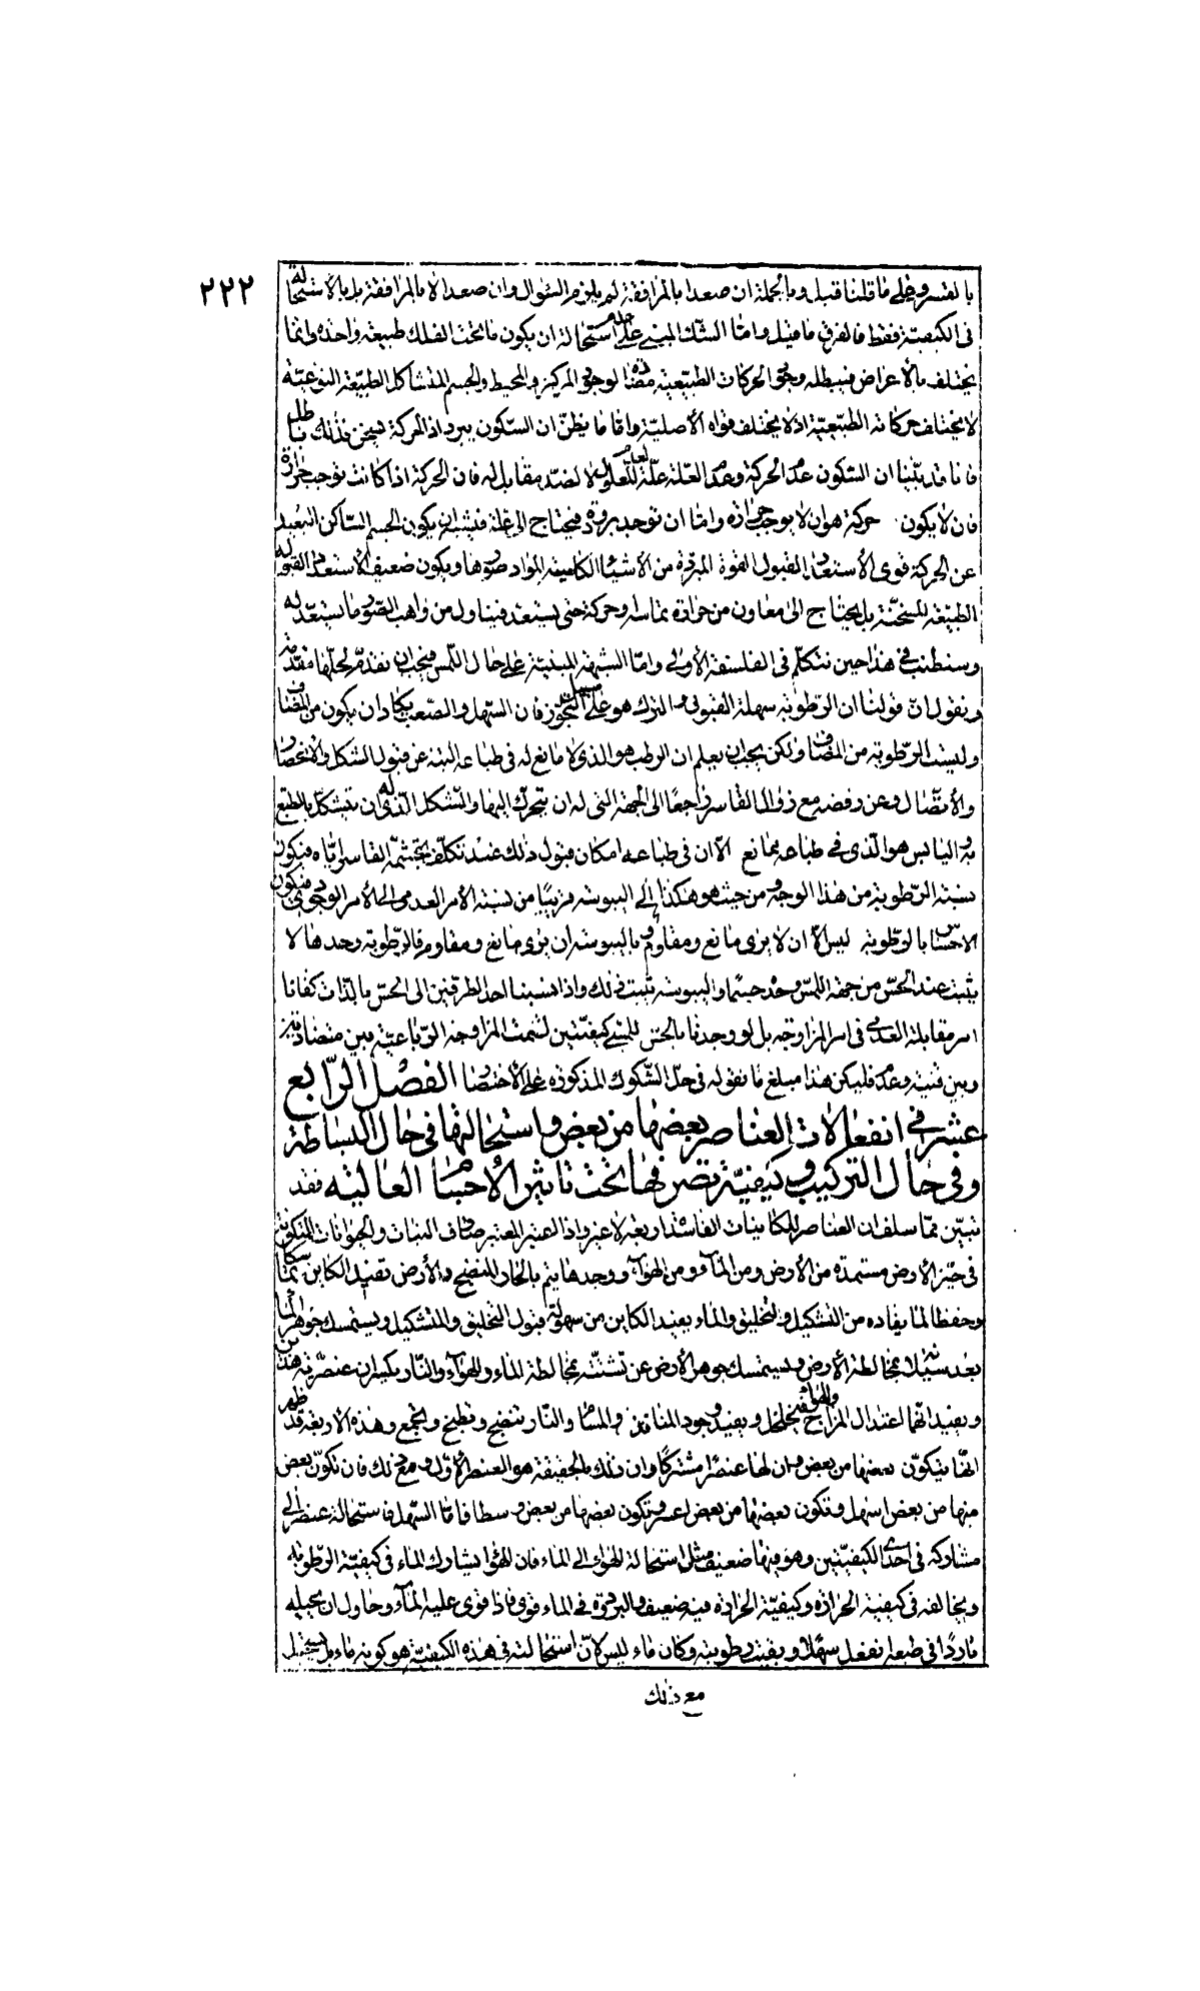 ٢٢٢
بالقسر وعلى ما قلنا قبل وبالجملة ان صعدا بالمرافقة لم يلزم السؤال وان صعد الا بالمرافقة بل بالاستحالة
فى الكيفية فقط فالفرق ما قيل واما الشك المبنى على استحالة ان يكون ما تحت الفلك طبيعة واحدة وانما
يختلف بالأعراض فيبطله وجود الحركات الطبيعية متضادة لوجود المركز والمحيط والجسم المتشاكل الطبيعة النوعية
لا يختلف حركاته الطبيعية اذ لا يختلف قواه الأصلية واما ما يظن ان السكون يبرد اذ الحركة تسخن فذلك باطل
فانا قد بينا ان السكون عدم الحركة وعدم العلة علة لعدم المعلول لا لضد مقابل له فان الحركة اذا كانت توجب حرارة
فان لا يكون حركة هو ان لا يوجب حرارة واما ان توجد برودة فيحتاج الى علة فيشبه ان يكون الجسم الساكن البعيد
عن الحركة قوى الأستعداد لقبول القوة المبردة من الأشياء الكاسية المواد صورها ويكون ضعيف الأستعداد لقبول
الطبيعة المسخنة بل يحتاج الى معاون من حرارة تماسه او حركة حتى يستعد فيناول من واهب الصور ما يستعد له
وسنطنب فى هذا حين نتكلم فى الفلسفة الأولى واما الشبهة المبنية على حال اللمس فيجب ان نقدم لحلها مقدمة
ونقول ان قولنا ان الرطوبة سهلة القبول والترك هو على سبيل التجوز فان السهل والصعب يكاد ان يكون من المضاف
وليست الرطوبة من المضاف ولكن يجب ان يعلم ان الرطب هو الذى لا مانع له فى طباعه البتة عن قبول الشكل والأنحصار
والأتصال وعن رفضه مع زوال القاسر راجعا الى الجهة التى له ان يتحرك اليها والشكل الذى له ان يتشكل بالطبع
به واليابس هو الذى فى طباعه ممانع الا ان فى طباعه امكان قبول ذلك عند تكلف يجشمه القاسر اياه فيكون
نسبة الرطوبة من هذا الوجه ومن حيث هو هكذا الى اليبوسة قريبا من نسبة الأمر العدمى الى الأمر الوجودى فيكون
الاحساس بالرطوبة ليس الا ان لا يرى مانع ومقاوم وباليبوسة ان يرى مانع ومقاوم فالرطوبة وحدها لا
يثبت عند الحس من جهة اللمس وحده جسما واليبوسة يثبت ذلك واذا نسبنا احد الطرفين الى الحس بالذات كفانا
امر مقابلة العدمى فى امر المزاوجة بل لو وجدنا بالحس اللمسى كيفيتين لتمت المزاوجة الرباعية بين متضادتين
وبين قنية وعدم فليكن هذا مبلغ ما نقوله فى حل الشكوك المذكورة على الأختصار الفصل الرابع
عشر فى انفعالات العناصر بعضها من بعض واستحالتها فى حال البساطة
وفى حال التركيب وكيفية تصرفها تحت تاثير الأجسام العالية فقد
تبين مما سلف ان العناصر للكاينات الفاسدة اربعة لا غير واذا اعتبر المعتبر صادف النبات والحيوانات المتكونة
فى حيز الأرض مستمدة من الأرض ومن الماء ومن الهواء ووجدها يتم بالحار المنضج والأرض تفيد الكاين تماسكا
وحفظا لما يفاده من التشكيل والتخليق والماء يفيد الكاين من سهولة قبول التخليق والتشكيل ويستمسك جوهر الماء
بعد سيلانه بمخالطة الأرض ويستمسك جوهر الأرض عن تشتته بمخالطة الماء والهواء والنار يكسران عنصرية هذين
ويفيدانهما اعتدال المزاج والهواء يخلخل ويفيد وجود المنافذ والمسام والنار تنضج وتطبخ وتجمع وهذه الأربعة قد ظهر
انها يتكون بعضها من بعض وان لها عنصرا مشتركا وان ذلك بالحقيقة هو العنصر الأول ومع ذلك فان تكون بعض
منها من بعض اسهل وتكون بعضها من بعض اعسر وتكون بعضها من بعض وسط فاما السهل فاستحالة عنصر الى
مشاركه فى احدى الكيفيتين وهو فيها ضعيف مثل استحالة الهواء الى الماء فان الهواء يشارك الماء فى كيفية الرطوبة
ويخالفه فى كيفية الحرارة وكيفية الحرارة فيه ضعيفة والبرودة فى الماء قوى فاذا قوى عليه الماء وحاول ان يحيله
باردا فى طبعه انفعل سهلا وبقيت رطوبته وكان ماء ليس كان استحالته فى هذه الكيفية هو كونه ماء بل يستحيل
مع ذلك